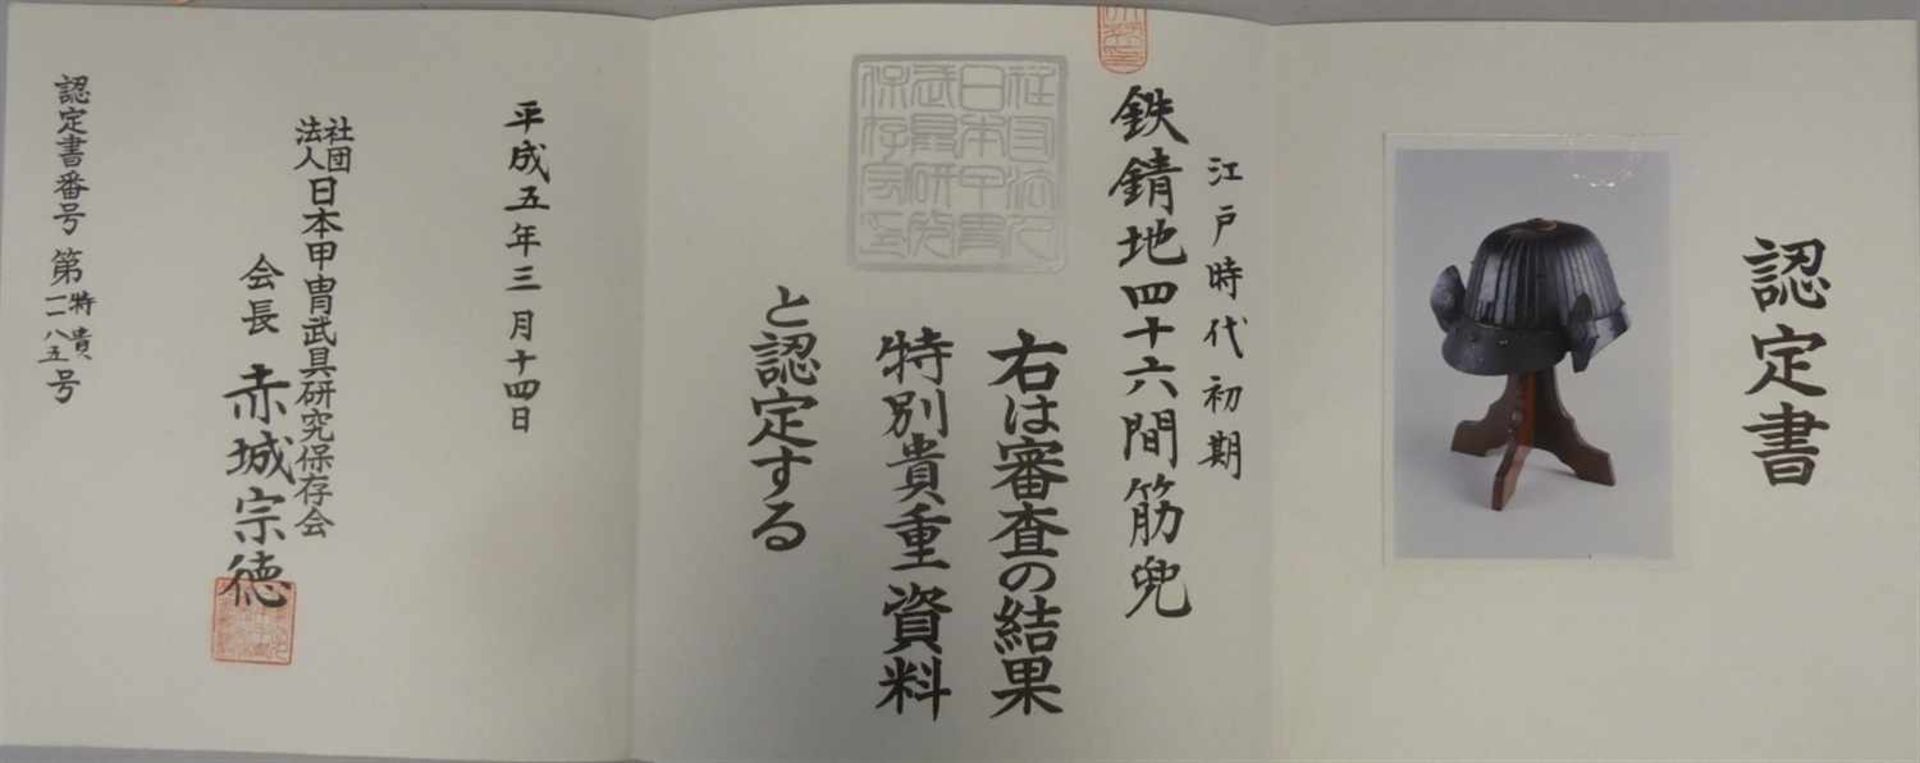 認定書
江戸時代初期
鉄錆地四十六間筋兜
右は審査の結果
特別貴重資料
と認定する
平成五年三月十四日
社団法人日本甲冑武具研究保存会
会長 赤城宗徳
認定書番号 第特貴一一八五号
社団法人日本甲冑武具研究保存会印